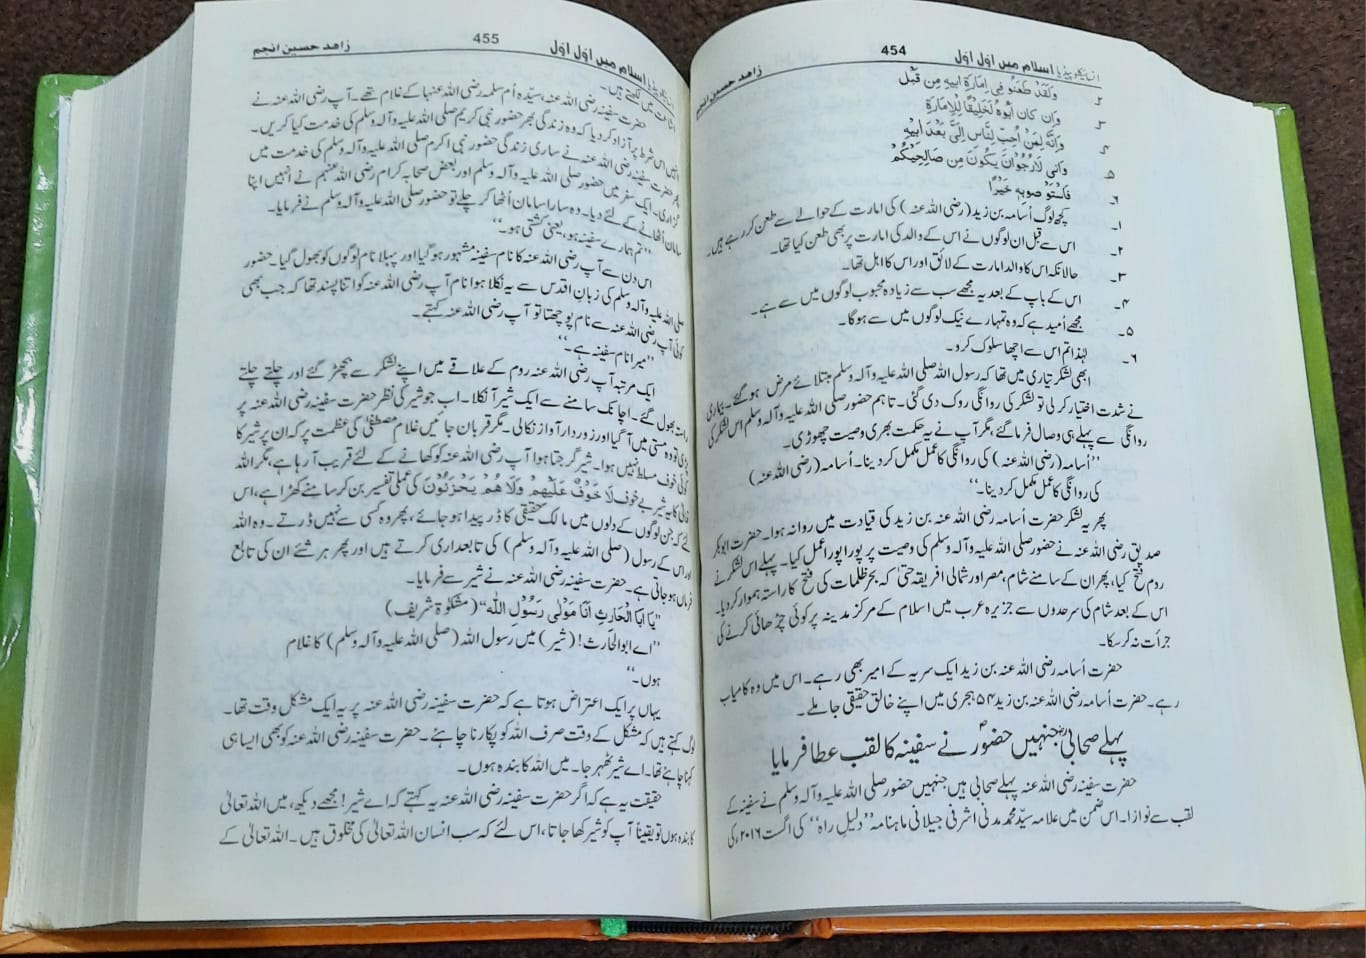 انسائیکلوپیڈیا اسلام میں اوّل اوّل 454 زاهد حسین انجم
۲۔ وَلَقَدْ طَعَنُو فِی اِمَارَةِ اَبِیهِ مِن قَبْل
۳۔ وَاِن کان اَبُوهُ لَخَلِیْقًا لِلْاِمَارَةِ
۴۔ وَاِنَّهُ لَمِنْ اَحِبّ لنَّاس اِلَیَّ بَعْدَ اَبِیْهِ
۵۔ وَاَنّی لَارْجُوْانْ یَکُونَ مِن صَالِحِیْکُمْ
۶۔ فَاسْتَوْ صوبِهٖ خَیْرًا
۱۔ کچھ لوگ اُسامہ بن زید (رضی اللہ عنہ) کی امارت کے حوالے سے طعن کر رہے ہیں۔
۲۔ اس سے قبل ان لوگوں نے اس کے والد کی امارت پر بھی طعن کیا تھا۔
۳۔ حالانکہ اس کا والد امارت کے لائق اور اس کا اہل تھا۔
۴۔ اس کے باپ کے بعد یہ مجھے سب سے زیادہ محبوب لوگوں میں سے ہے۔
۵۔ مجھے اُمید ہے کہ وہ تمہارے نیک لوگوں میں سے ہوگا۔
۶۔ لہٰذا تم اس سے اچھا سلوک کرو۔
ابھی لشکر تیاری میں تھا کہ رسول اللہ صلی اللہ علیہ وآلہ وسلم مبتلائے مرض ہو گئے۔ بیماری
نے شدت اختیار کر لی تو لشکر کی روانگی روک دی گئی۔ تاہم حضور صلی اللہ علیہ وآلہ وسلم اس لشکر کی
روانگی سے پہلے ہی وصال فرما گئے، مگر آپ نے یہ حکمت بھری وصیت چھوڑی۔
’’اُسامہ (رضی اللہ عنہ) کی روانگی کا عمل مکمل کر دینا۔ اُسامہ (رضی اللہ عنہ)
کی روانگی کا عمل مکمل کر دینا۔‘‘
پھر یہ لشکر حضرت اُسامہ رضی اللہ عنہ بن زید کی قیادت میں روانہ ہوا۔ حضرت ابوبکر
صدیق رضی اللہ عنہ نے حضور صلی اللہ علیہ وآلہ وسلم کی وصیت پر پورا پورا عمل کیا۔ پہلے اس لشکر نے
روم فتح کیا، پھر ان کے سامنے شام، مصر اور شمالی افریقہ حتیٰ کہ بحر ظلمات کی فتح کا راستہ ہموار کر دیا۔
اس کے بعد شام کی سرحدوں سے جزیرہ عرب میں اسلام کے مرکز مدینہ پر کوئی چڑھائی کرنے کی
جرأت نہ کر سکا۔
حضرت اُسامہ رضی اللہ عنہ بن زید ایک سریہ کے امیر بھی رہے۔ اس میں وہ کامیاب
رہے۔ حضرت اُسامہ رضی اللہ عنہ بن زید ۵۴ ہجری میں اپنے خالق حقیقی جا ملے۔
پہلے صحابیؓ جنہیں حضورؐ نے سفینہ کا لقب عطا فرمایا
حضرت سفینہ رضی اللہ عنہ پہلے صحابی ہیں جنہیں حضور صلی اللہ علیہ وآلہ وسلم نے سفینہ کے
لقب سے نوازا۔ اس ضمن میں علامہ سیّد محمد مدنی اشرفی جیلانی ماہنامہ ’’دلیل راہ‘‘ کی اگست ۲۰۱۶ء کی
انسائیکلوپیڈیا اسلام میں اوّل اوّل 455 زاهد حسین انجم
اشاعت میں لکھتے ہیں۔
حضرت سفینہ رضی اللہ عنہ، سیّدہ اُم سلمہ رضی اللہ عنہا کے غلام تھے۔ آپ رضی اللہ عنہ نے
انہیں اس شرط پر آزاد کر دیا کہ وہ زندگی بھر حضور نبی کریم صلی اللہ علیہ وآلہ وسلم کی خدمت کیا کریں۔
پھر حضرت سفینہ رضی اللہ عنہ نے ساری زندگی حضور نبی اکرم صلی اللہ علیہ وآلہ وسلم کی خدمت میں
گزاری۔ ایک سفر میں حضور صلی اللہ علیہ وآلہ وسلم اور بعض صحابہ کرام رضی اللہ عنہم نے انہیں اپنا
سامان اُٹھانے کے لئے دیا۔ وہ سارا سامان اُٹھا کر چلے تو حضور صلی اللہ علیہ وآلہ وسلم نے فرمایا۔
’’تم ہمارے سفینہ ہو، یعنی کشتی ہو۔‘‘
اس دن سے آپ رضی اللہ عنہ کا نام سفینہ مشہور ہو گیا اور پہلا نام لوگوں کو بھول گیا۔ حضور
صلی اللہ علیہ وآلہ وسلم کی زبان اقدس سے یہ نکلا ہوا نام آپ رضی اللہ عنہ کو اتنا پسند تھا کہ جب بھی
کوئی آپ رضی اللہ عنہ سے نام پوچھتا تو آپ رضی اللہ عنہ کہتے۔
’’میرا نام سفینہ ہے۔‘‘
ایک مرتبہ آپ رضی اللہ عنہ روم کے علاقے میں اپنے لشکر سے بچھڑ گئے اور چلتے چلتے
راستہ بھول گئے۔ اچانک سامنے سے ایک شیر آ نکلا۔ اب جو شیر کی نظر حضرت سفینہ رضی اللہ عنہ پر
پڑی تو وہ مستی میں آ گیا اور زوردار آواز نکالی۔ مگر قربان جائیں غلام مصطفیٰ کی عظمت پر کہ ان پر شیر کا
کوئی خوف مسلط نہیں ہوا۔ شیر گرجتا ہوا آپ رضی اللہ عنہ کو کھانے کے لئے قریب آ رہا ہے، مگر اللہ
تعالیٰ کا یہ شیر بے خوف لَا خَوْفٌ عَلَیْهِمْ وَلَا هُمْ یَحْزَنُوْنَ کی عملی تفسیر بن کر سامنے کھڑا ہے، اس
لئے کہ جن لوگوں کے دلوں میں مالک حقیقی کا ڈر پیدا ہو جائے، پھر وہ کسی سے نہیں ڈرتے۔ وہ اللہ
اور اس کے رسول (صلی اللہ علیہ وآلہ وسلم) کی تابعداری کرتے ہیں اور پھر ہر شئے ان کی تابع
فرماں ہو جاتی ہے۔ حضرت سفینہ رضی اللہ عنہ نے شیر سے فرمایا۔
’’یَا اَبَا الْحَارِثِ اَنَا مَوْلٰی رَسُوْلِ اللّٰه‘‘ (مشکوٰۃ شریف)
’’اے ابوالحارث! (شیر) میں رسول اللہ (صلی اللہ علیہ وآلہ وسلم) کا غلام
ہوں۔‘‘
یہاں پر ایک اعتراض ہوتا ہے کہ حضرت سفینہ رضی اللہ عنہ پر یہ ایک مشکل وقت تھا۔
لوگ کہتے ہیں کہ مشکل کے وقت صرف اللہ کو پکارنا چاہئے۔ حضرت سفینہ رضی اللہ عنہ کو بھی ایسا ہی
کہنا چاہئے تھا۔ اے شیر ٹھہر جا۔ میں اللہ کا بندہ ہوں۔
حقیقت یہ ہے کہ اگر حضرت سفینہ رضی اللہ عنہ یہ کہتے کہ اے شیر! مجھے دیکھ، میں اللہ تعالیٰ
کا بندہ ہوں تو یقیناً آپ کو شیر کھا جاتا، اس لئے کہ سب انسان اللہ تعالیٰ کی مخلوق ہیں۔ اللہ تعالیٰ کے